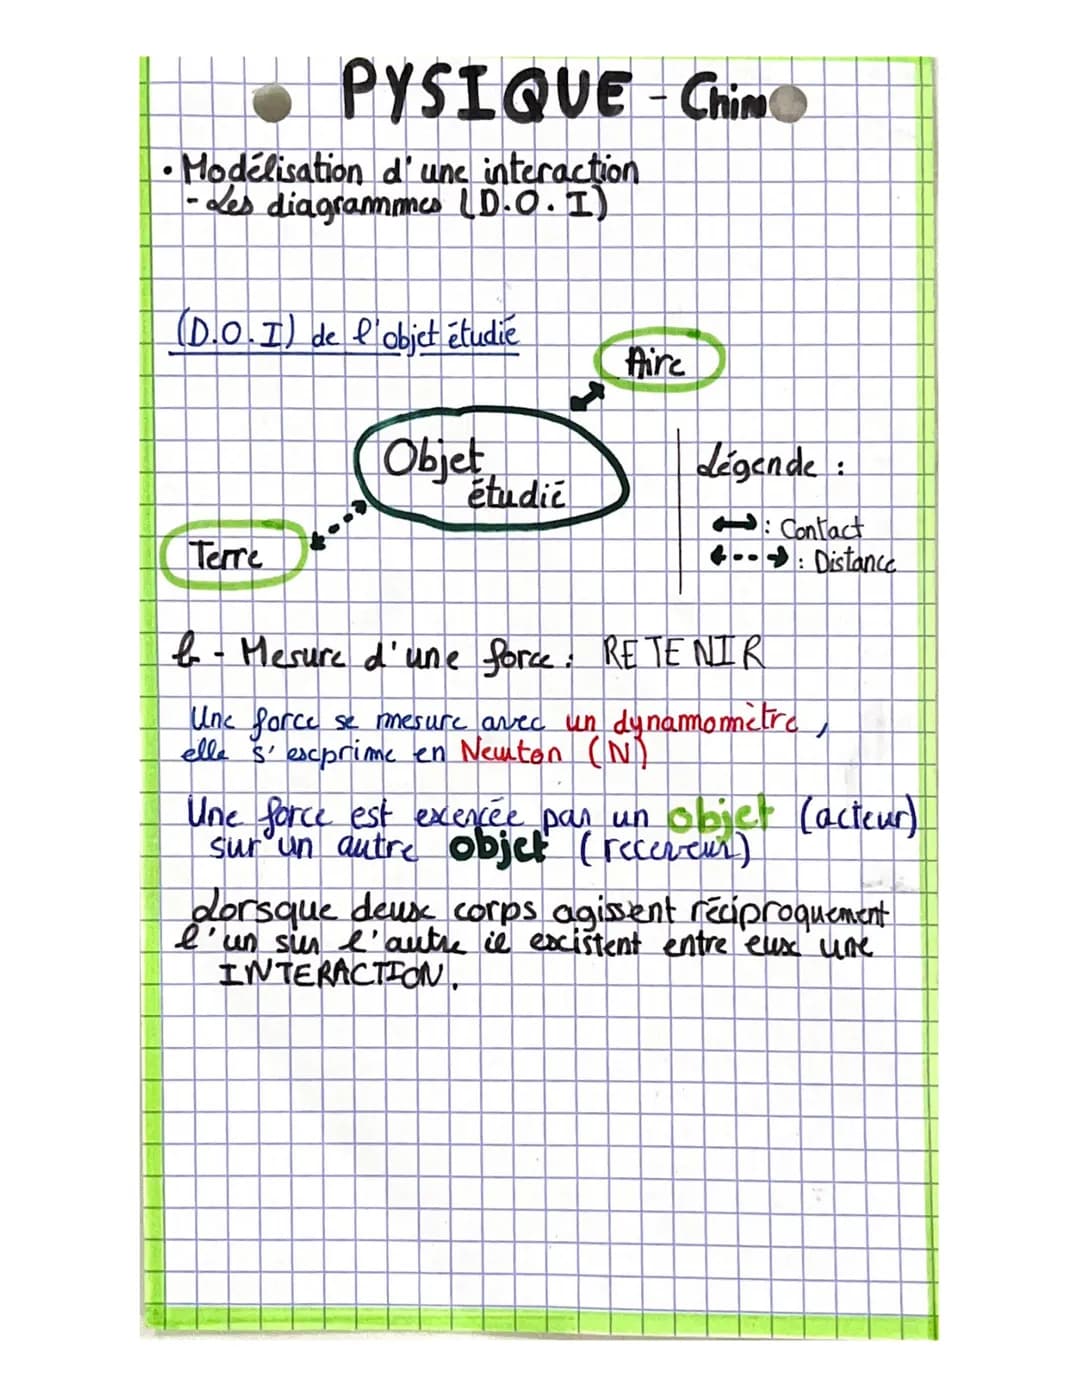 PYSIQUE - Chim
• Modélisation d'une interaction
- Les diagrammes (D.O.I)
(D.O.I) de l'objet étudié
Aire
Objet
étudié
Légende :
: Contact
: Distance
Terre
b - Mesure d'une force : RETENIR
Une force se mesure avec un dynamomètre,
elle s'exprime en Newton (N)
Une force est exercée par un objet (acteur)
sur un autre objet (receveur)
Lorsque deux corps agissent réciproquement
l'un sur l'autre il existent entre eux une
INTERACTION.